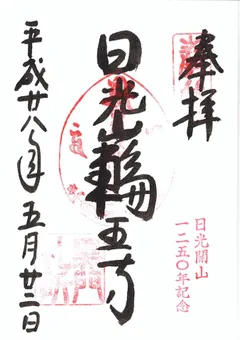 奉拝
日光山輪王寺
平成廿八年五月廿二日
日光開山
一二五〇年記念